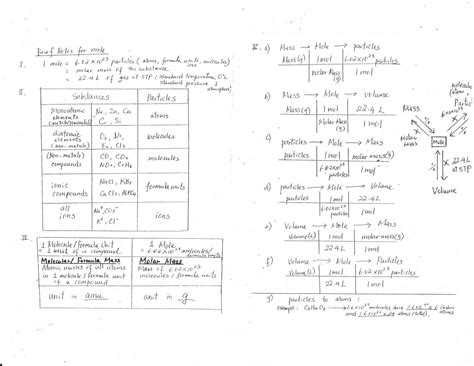 Brief Notes for mole
I. 1 mole = 6.02 x 10²³ particles (atoms, formula units, molecules)
= molar mass of the substance
= 22.4 L of gas at STP (Standard temperature, 0°C
Standard pressure, 1
atmosphere)
II.
Substances | Particles
monoatomic elements | Na, Zn, Cu C, Si | atoms
diatomic elements (non-metals) | O₂, N₂, F₂, Cl₂ | molecules
(Non-metals) compounds | CO, CO₂ NO₂, C₂H₄ | molecules
ionic compounds | NaCl, KBr CaCl₂, AlPO₄ | formula units
all ions | Na⁺, CO₃²⁻ K⁺, Cl⁻ | ions
III.
1 Molecule/formula Unit = 1 unit of a compound | 1 Mole = 6.02 x 10²³ molecules/formula units
Molecules/Formula Mass | Molar Mass
Atoms masses of all atoms in 1 molecule/formula unit of a compound | Mass of 6.02 x 10²³ molecules/formula units
unit = amu | unit in g
IV. a) Mass → Mole → particles
Mass (g) | 1 mol | 6.02 x 10²³ particles
molar Mass (g) | 1 mol
b) Mass → Mole → volume
Mass (g) | 1 mol | 22.4 L
Molar Mass (g) | 1 mol
c) particles → Mole → Mass
particles | 1 mol | molar mass (g)
6.02 x 10²³ | 1 mol
d) particles → Mole → Volume
particles | 1 mol | 22.4 L
6.02 x 10²³ | 1 mol
e) Volume → Mole → Mass
Volume (L) | 1 mol | molar mass (g)
22.4 L | 1 mol
f) Volume → Mole → Particles
Volume (L) | 1 mol | 6.02 x 10²³ particles
22.4 L | 1 mol
g) particles to atoms:
Example: molecules have
atoms (total),
Mass
Molar Mass
Mole
6.02 x 10²³
x 22.4 L
at STP
Volume